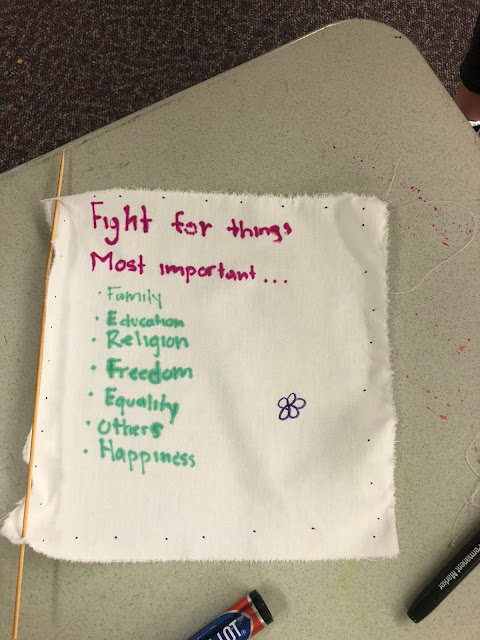 Fight for things
Most important...
· Family
· Education
· Religion
· Freedom
· Equality
· Others
· Happiness
Permanent Marker